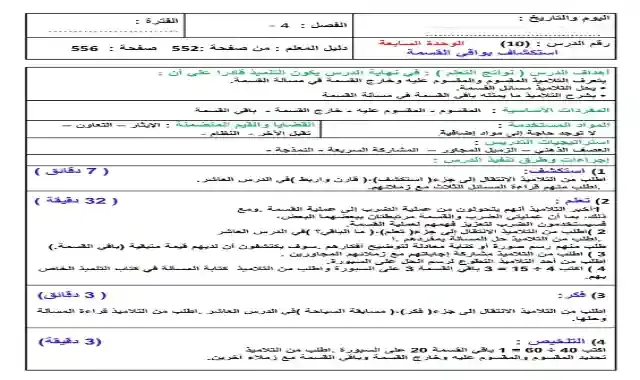 اليوم والتاريخ :
الفصل : 4 -
الفترة :
رقم الدرس : (10) الوحدة السابعة
استكشاف بواقي القسمة
دليل المعلم : من صفحة :552 صفحة : 556
أهداف الدرس ( نواتج التعلم ) : في نهاية الدرس يكون التلميذ قادرا على أن :
يتعرف التلاميذ المقسوم والمقسوم عليه وخارج القسمة في مسألة القسمة.
• يحل التلاميذ مسائل القسمة.
• يشرح التلاميذ ما يمثله باقي القسمة في مسألة القسمة
المفردات الأساسية : المقسوم - المقسوم عليه - خارج القسمة - باقي القسمة
المواد المستخدمة :
لا توجد حاجة إلى مواد إضافية.
القضايا والقيم المتضمنة : الإيثار – التعاون –
تقبل الآخر - النظام -
استراتيجيات التدريس :
العصف الذهني – الزميل المجاور – المشاركة السريعة - النمذجة -
إجراءات وطرق تنفيذ الدرس :
1) استكشف: ( 7 دقائق )
اطلب من التلاميذ الانتقال إلى جزء( استكشف)،( قارن واربط )في الدرس العاشر.
.اطلب منهم قراءة المسائل الثلاث مع زملائهم.
2) تعلم : ( 32 دقيقة )
1أخبر التلاميذ أنهم يتحولون من عملية الضرب إلى عملية القسمة .ومع
ذلك، بما أن عمليتي الضرب والقسمة مرتبطتان ببعضهما البعض،
فسيستخدمون الضرب لتعزيز فهمهم لعملية القسمة.
2 )اطلب من التلاميذ الانتقال إلى جزء( تعلم)،( ما الباقي؟ )في الدرس العاشر
.اطلب من التلاميذ حل المسألة بمفردهم .
طلب منهم رسم صورة أو كتابة معادلة لتوضيح أفكارهم .سوف يكتشفون أن لديهم قيمة متبقية (باقي القسمة.)
3 ) اطلب من التلاميذ مشاركة إجاباتهم مع زملائهم المجاورين .
اطلب من أحد التلاميذ التطوع لرسم الحل على السبورة.
4 ) اكتب 4 ÷ 15 = 3 باقي القسمة 3 على السبورة واطلب من التلاميذ كتابة المسألة في كتاب التلميذ الخاص
بهم.
3) فكر : ( 3 دقائق)
اطلب من التلاميذ الانتقال إلى جزء( فكر)،( مسابقة السباحة )في الدرس العاشر .اطلب من التلاميذ قراءة المسألة
وحلها.
4) التلخيص : (3 دقيقة)
اكتب 40 ÷ 60 = 1 باقي القسمة 20 على السبورة .اطلب من التلاميذ
تحديد المقسوم والمقسوم عليه وخارج القسمة وباقي القسمة مع زملاء آخرين.